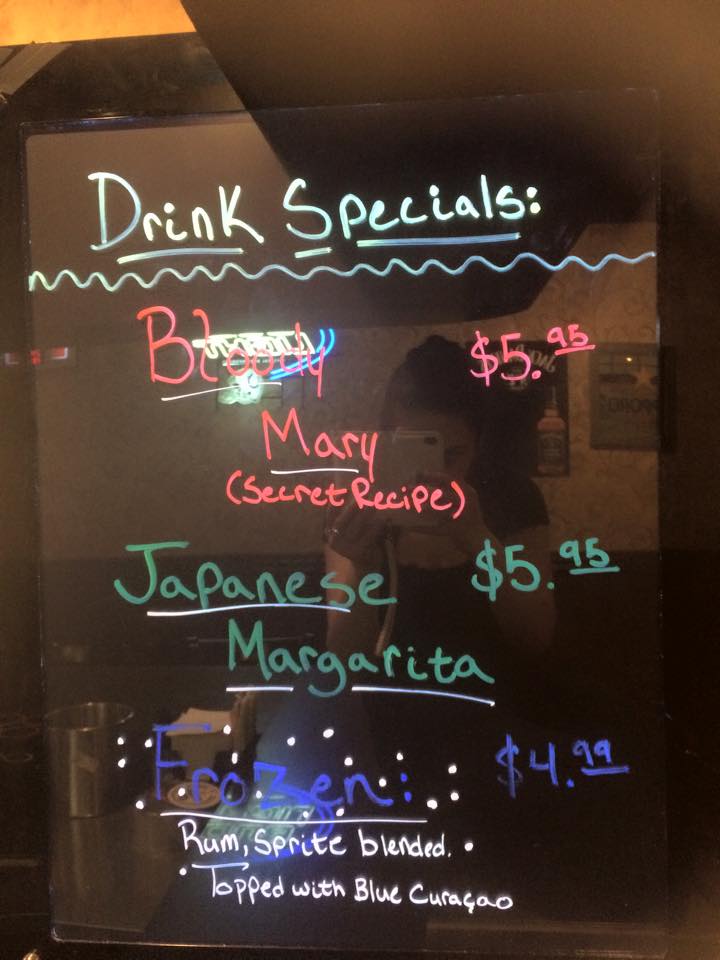 Drink Specials:
Bloody $5.95
Mary
(Secret Recipe)
Japanese $5.95
Margarita
Frozen: $4.99
Rum, Sprite blended.
Topped with Blue Curaçao